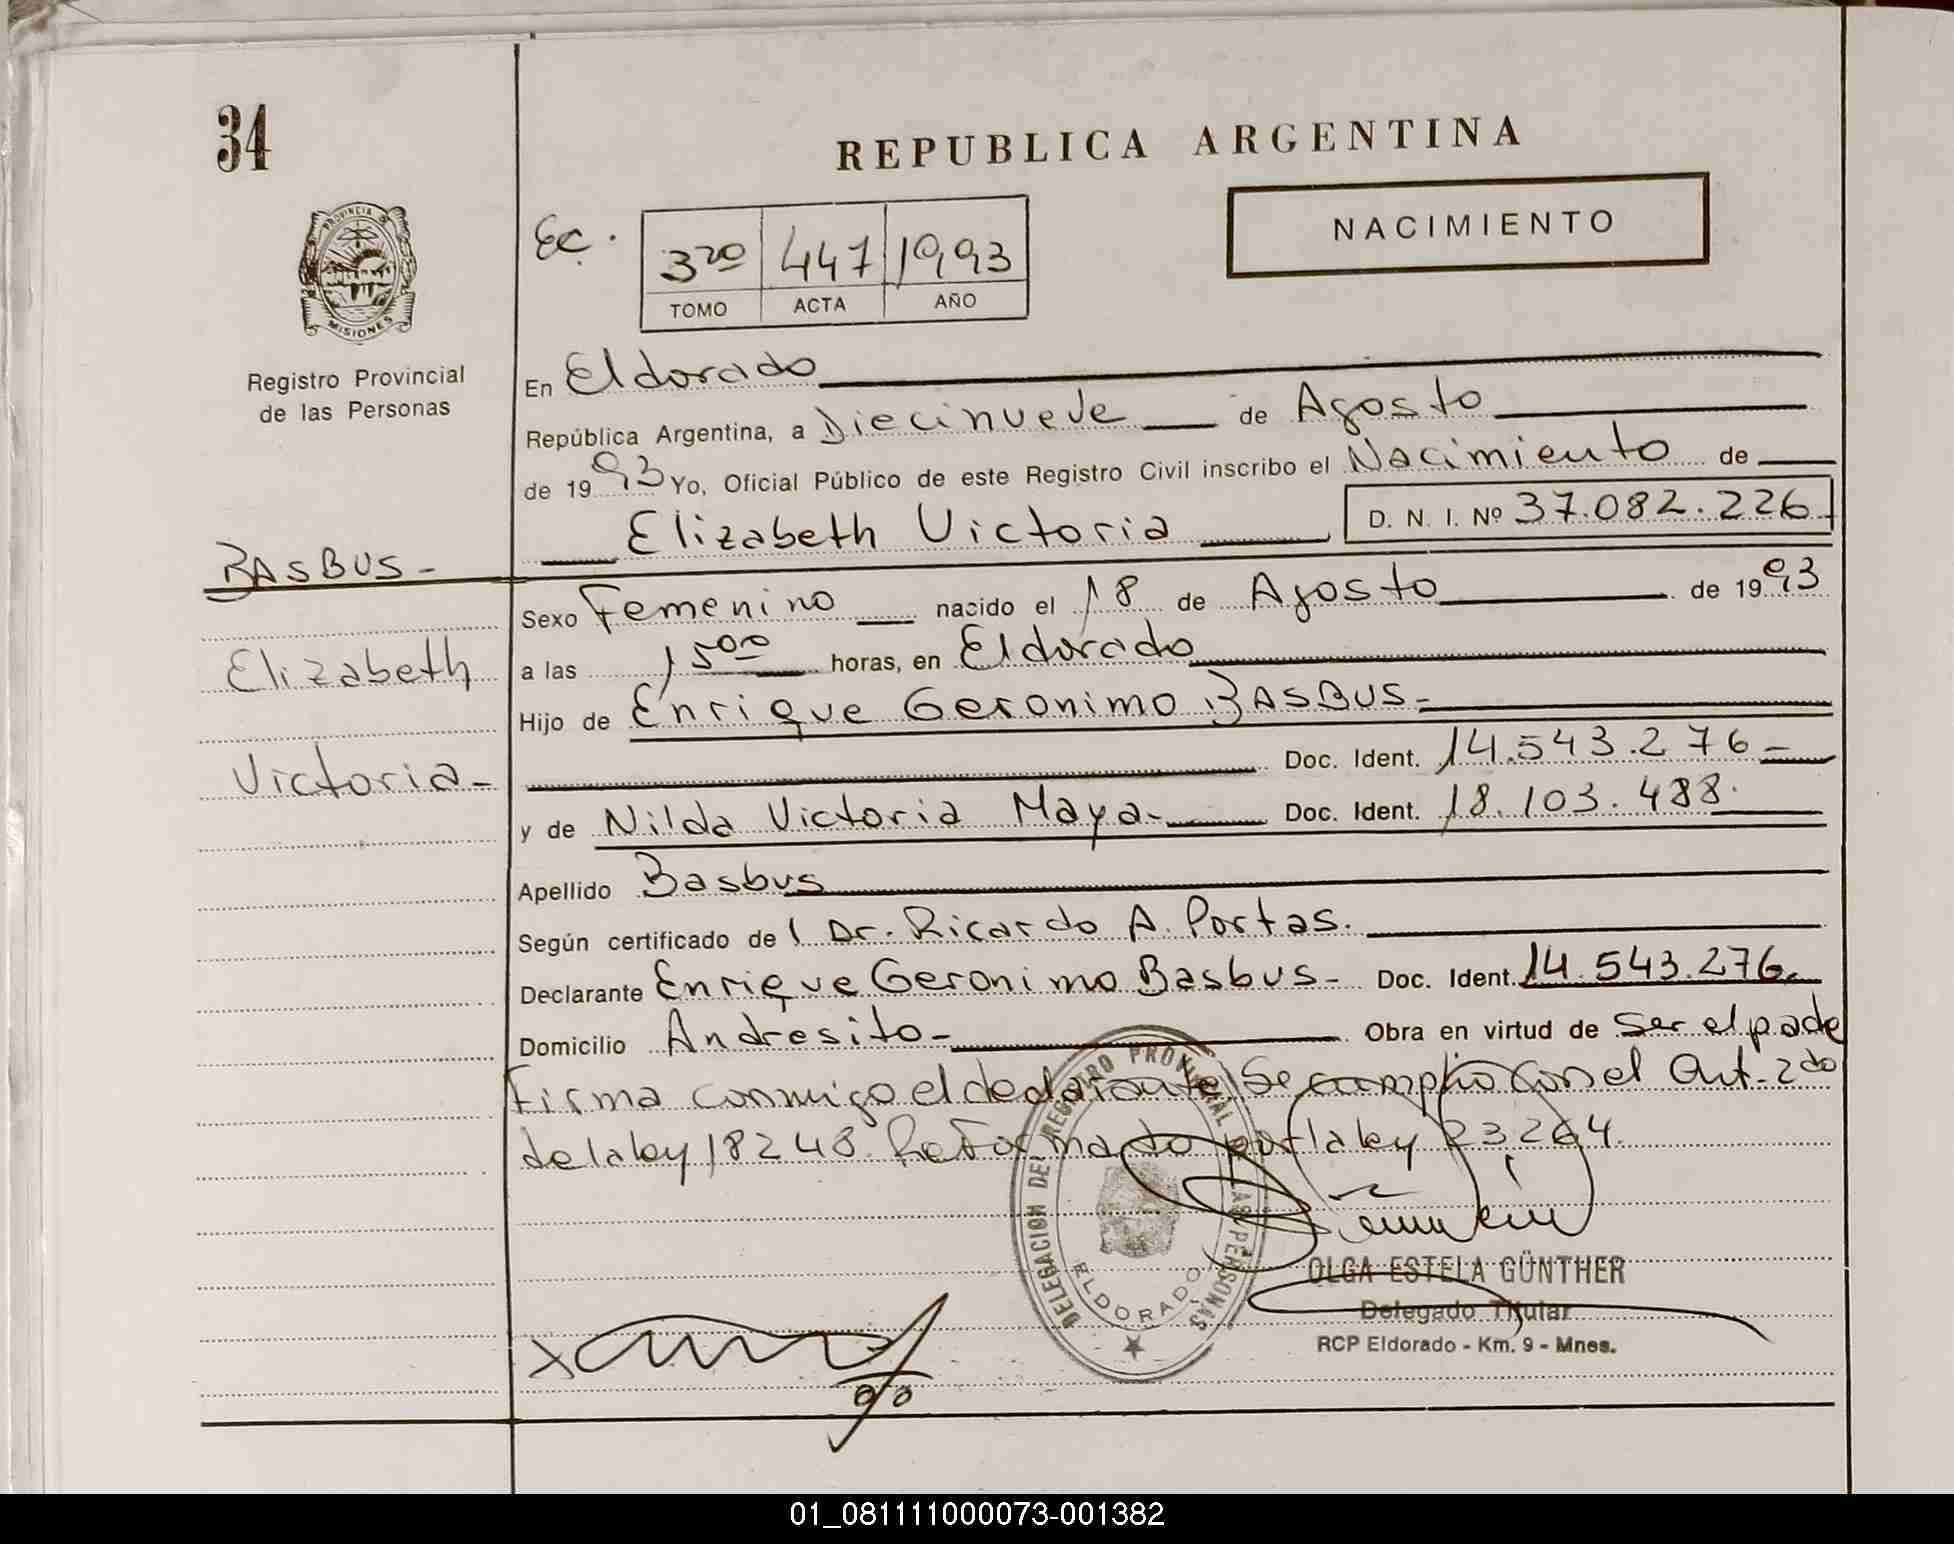 34
REPUBLICA ARGENTINA
PROVINCIA DE
MISIONES
Registro Provincial
de las Personas
NACIMIENTO
Ec.
3ro 447 1993
TOMO ACTA AÑO
En Eldorado
República Argentina, a Diecinueve de Agosto
de 1993 Yo, Oficial Público de este Registro Civil inscribo el Nacimiento de
Elizabeth Victoria D. N. I. Nº 37.082.226
BASBUS -
Elizabeth
Victoria -
Sexo Femenino nacido el 18 de Agosto de 1993
a las 15 00 horas, en Eldorado
Hijo de Enrique Geronimo BASBUS -
Doc. Ident. 14.543.276 -
y de Nilda Victoria Maya - Doc. Ident. 18.103.488.
Apellido Basbus
Según certificado de l Dr. Ricardo A. Portas.
Declarante Enrique Geronimo Basbus - Doc. Ident. 14.543.276.
Domicilio Andresito - Obra en virtud de Ser el pade
Firma conmigo el declarante Se cumplio con el Art. 2do
de la ley 18248. Reformado por la ley 23264.
DELEGACION DE REGISTRO PROVINCIAL LAS PERSONAS
ELDORADO
OLGA ESTELA GÜNTHER
Delegado Titular
RCP Eldorado - Km. 9 - Mnes.
01_081111000073-001382